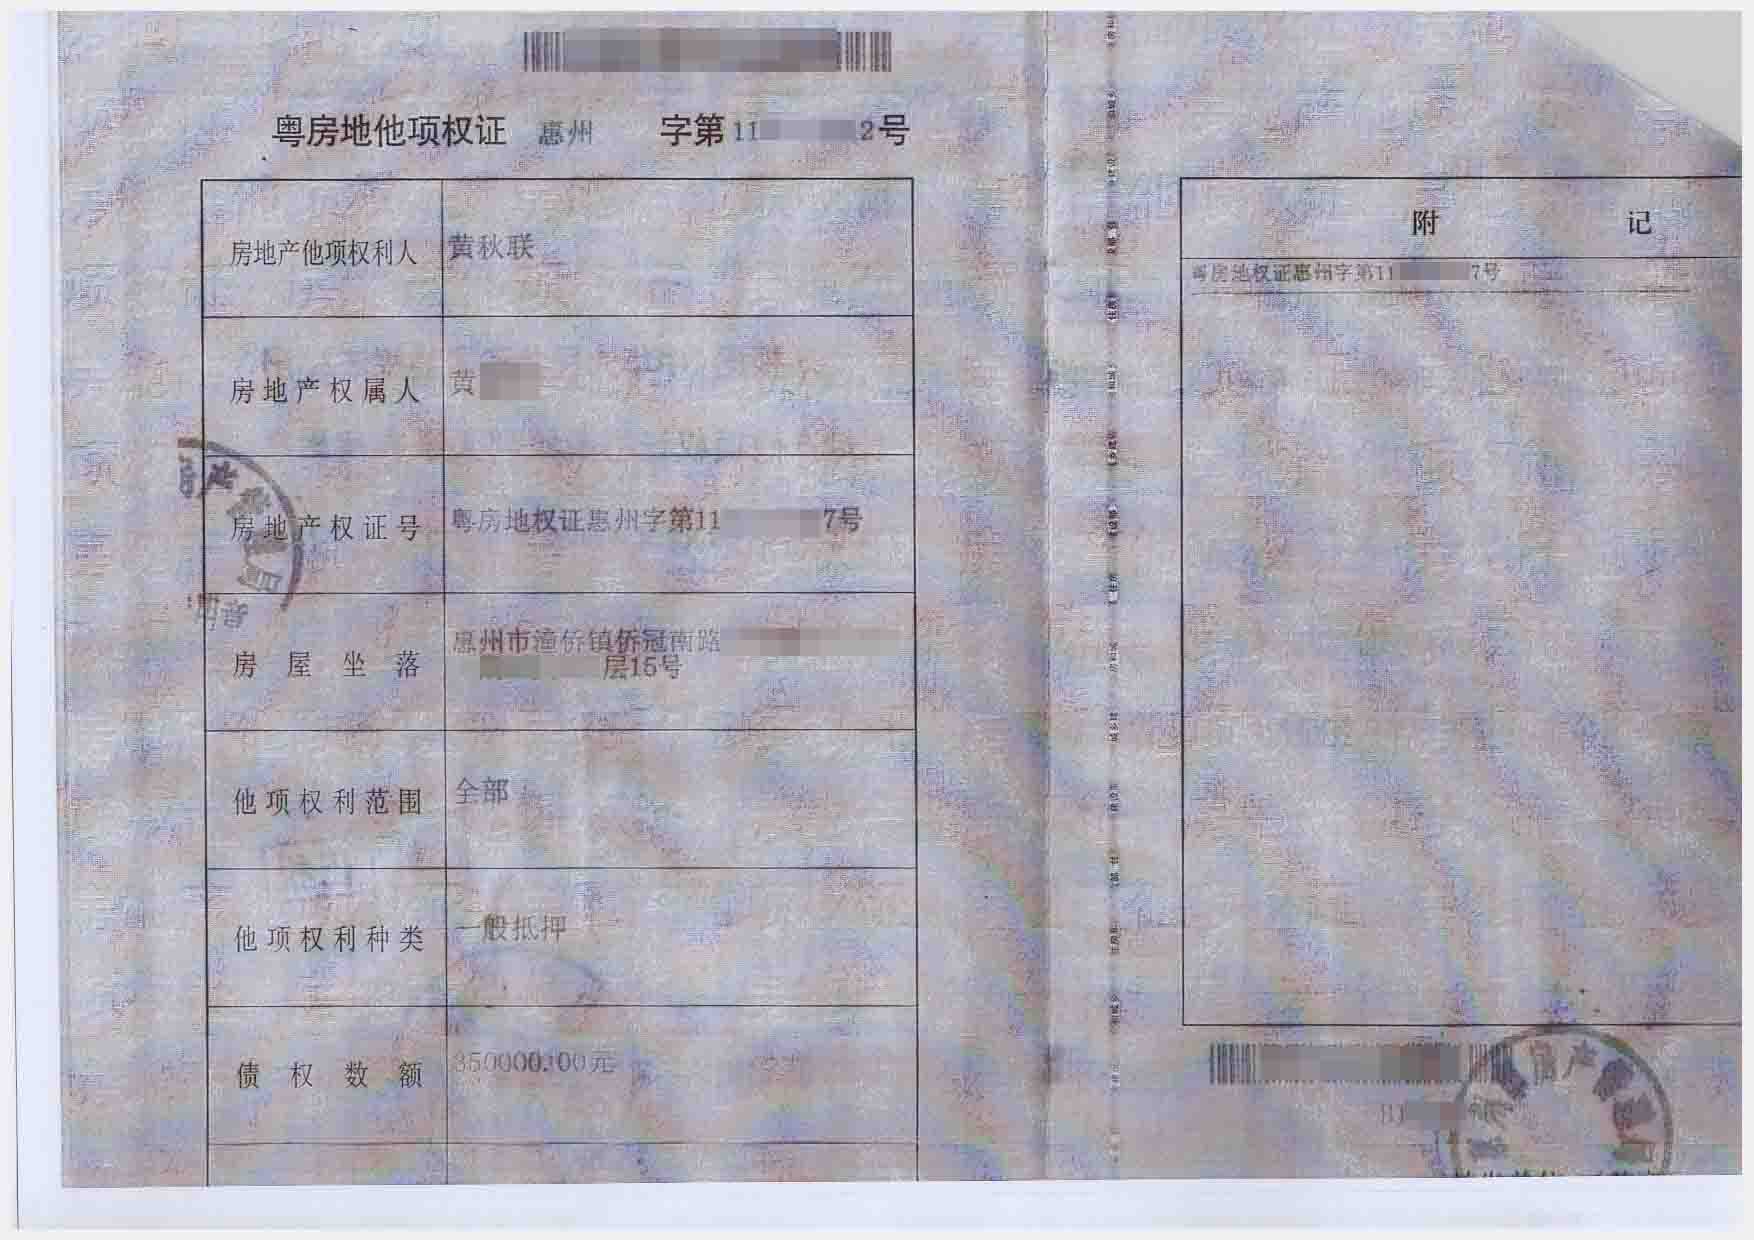 粤房地他项权证 惠州 字第11 2号
房地产他项权利人 黄秋联
房地产权属人 黄
房地产权证号 粤房地权证惠州字第11 7号
房屋坐落 惠州市潼侨镇侨冠南路
层15号
他项权利范围 全部
他项权利种类 一般抵押
债权数额 350000.00元
附 记
粤房地权证惠州字第11 7号